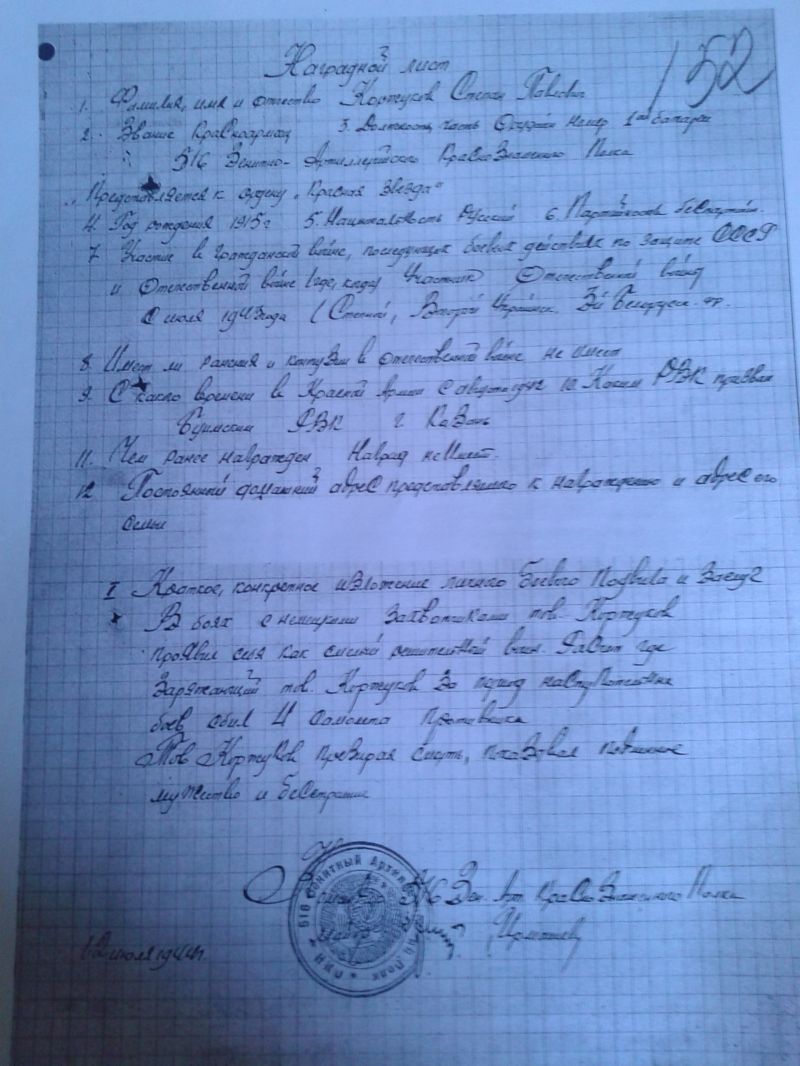 152
Наградной лист
1. Фамилия, имя и отчество Кортуков Степан Павлович
2. Звание Красноармеец 3. Должность, часть Орудийн номер 1ой батареи
516 Зенитно-Артиллерийского Краснознаменного Полка
Представляется к ордену „Красная Звезда"
4. Год рождения 1915г 5. Национальность Русский 6. Партийность беспартийн.
7. Участие в гражданской войне, последующих боевых действиях по защите СССР
и Отечественной войне (где, когда) Участник Отечественной войны
с июля 1943 года (Степной, Второй Украинск. 3й Белорусск. фр.
8. Имеет ли ранения и контузии в отечественной войне не имеет
9. С какого времени в Красной Армии с августа 1942 10. Каким РВК призван
РВК г. Казань
11. Чем ранее награжден Наград не имеет.
12. Постоянный домашний адрес представляемого к награждению и адрес его
семьи
I Краткое, конкретное изложение личного боевого подвига и заслуг
В боях с немецкими захватчиками тов. Кортуков
проявил себя как смелый решительный воин. Расчет где
Заряжающий тов. Кортуков за период наступательных
боев сбил 4 самолета противника
Тов Кортуков презирая смерть, показовал подлинное
мужество и бесстрашие
516 Зен. Арт. Краснознаменного Полка
516 Зенитный Артил
Полк
12 июля 1944г.